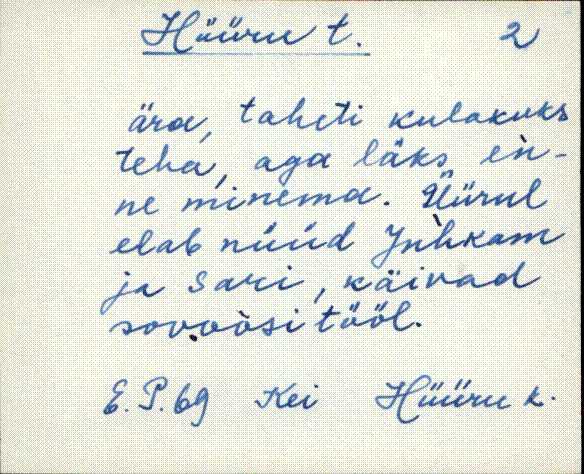 Hüüru t. 2
ära, taheti kulakuks
teha, aga läks èn-
ne minema. Üürul
elab nüüd Juhkam
ja Sari, käivad
sovoòsi tööl.
E. P. 69 Kei Hüüru k.